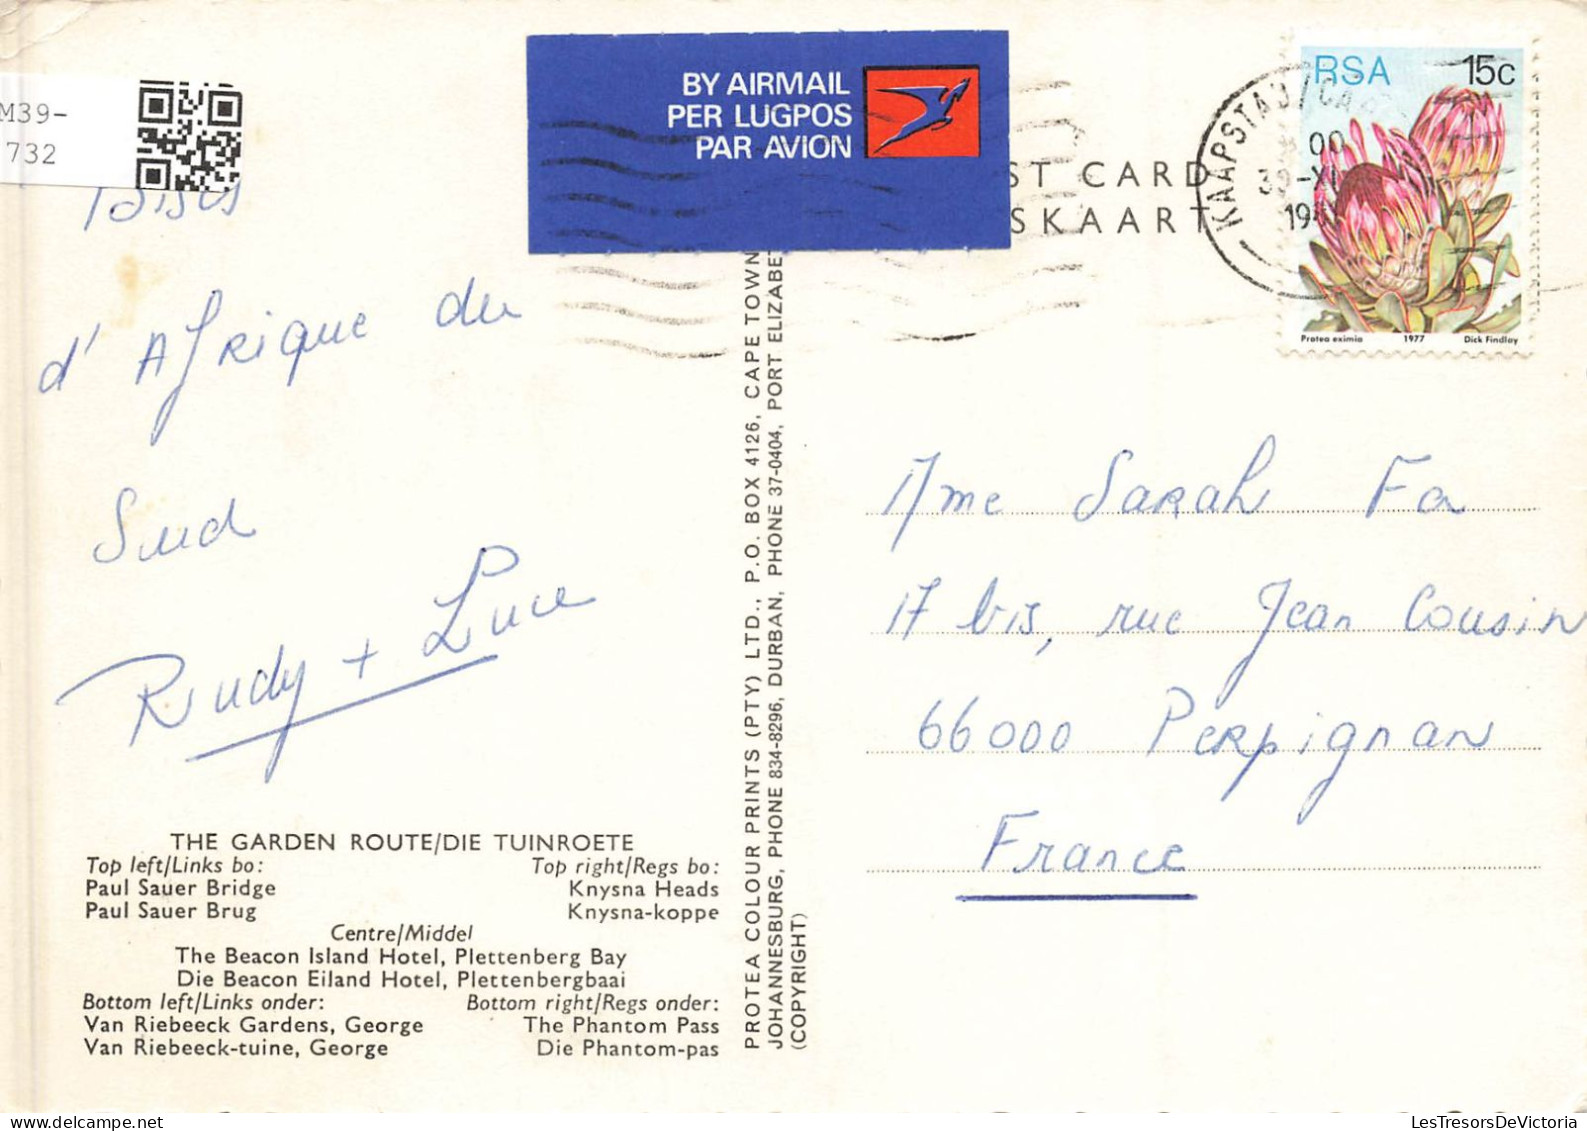 M39-
732
BY AIRMAIL
PER LUGPOS
PAR AVION
ST CARD
SKAART
RSA 15c
KAAPSTAD / CA
00
19
Protea eximia 1977 Dick Findlay
d'Afrique du
Sud
Rudy + Luce
Mme Sarah Fa
17 bis, rue Jean Cousin
66000 Perpignan
France
THE GARDEN ROUTE/DIE TUINROETE
Top left/Links bo: Top right/Regs bo:
Paul Sauer Bridge Knysna Heads
Paul Sauer Brug Knysna-koppe
Centre/Middel
The Beacon Island Hotel, Plettenberg Bay
Die Beacon Eiland Hotel, Plettenbergbaai
Bottom left/Links onder: Bottom right/Regs onder:
Van Riebeeck Gardens, George The Phantom Pass
Van Riebeeck-tuine, George Die Phantom-pas
PROTEA COLOUR PRINTS (PTY) LTD., P.O. BOX 4126, CAPE TOWN
JOHANNESBURG, PHONE 834-8296, DURBAN, PHONE 37-0404, PORT ELIZABET
(COPYRIGHT)
LesTresorsDeVictoria